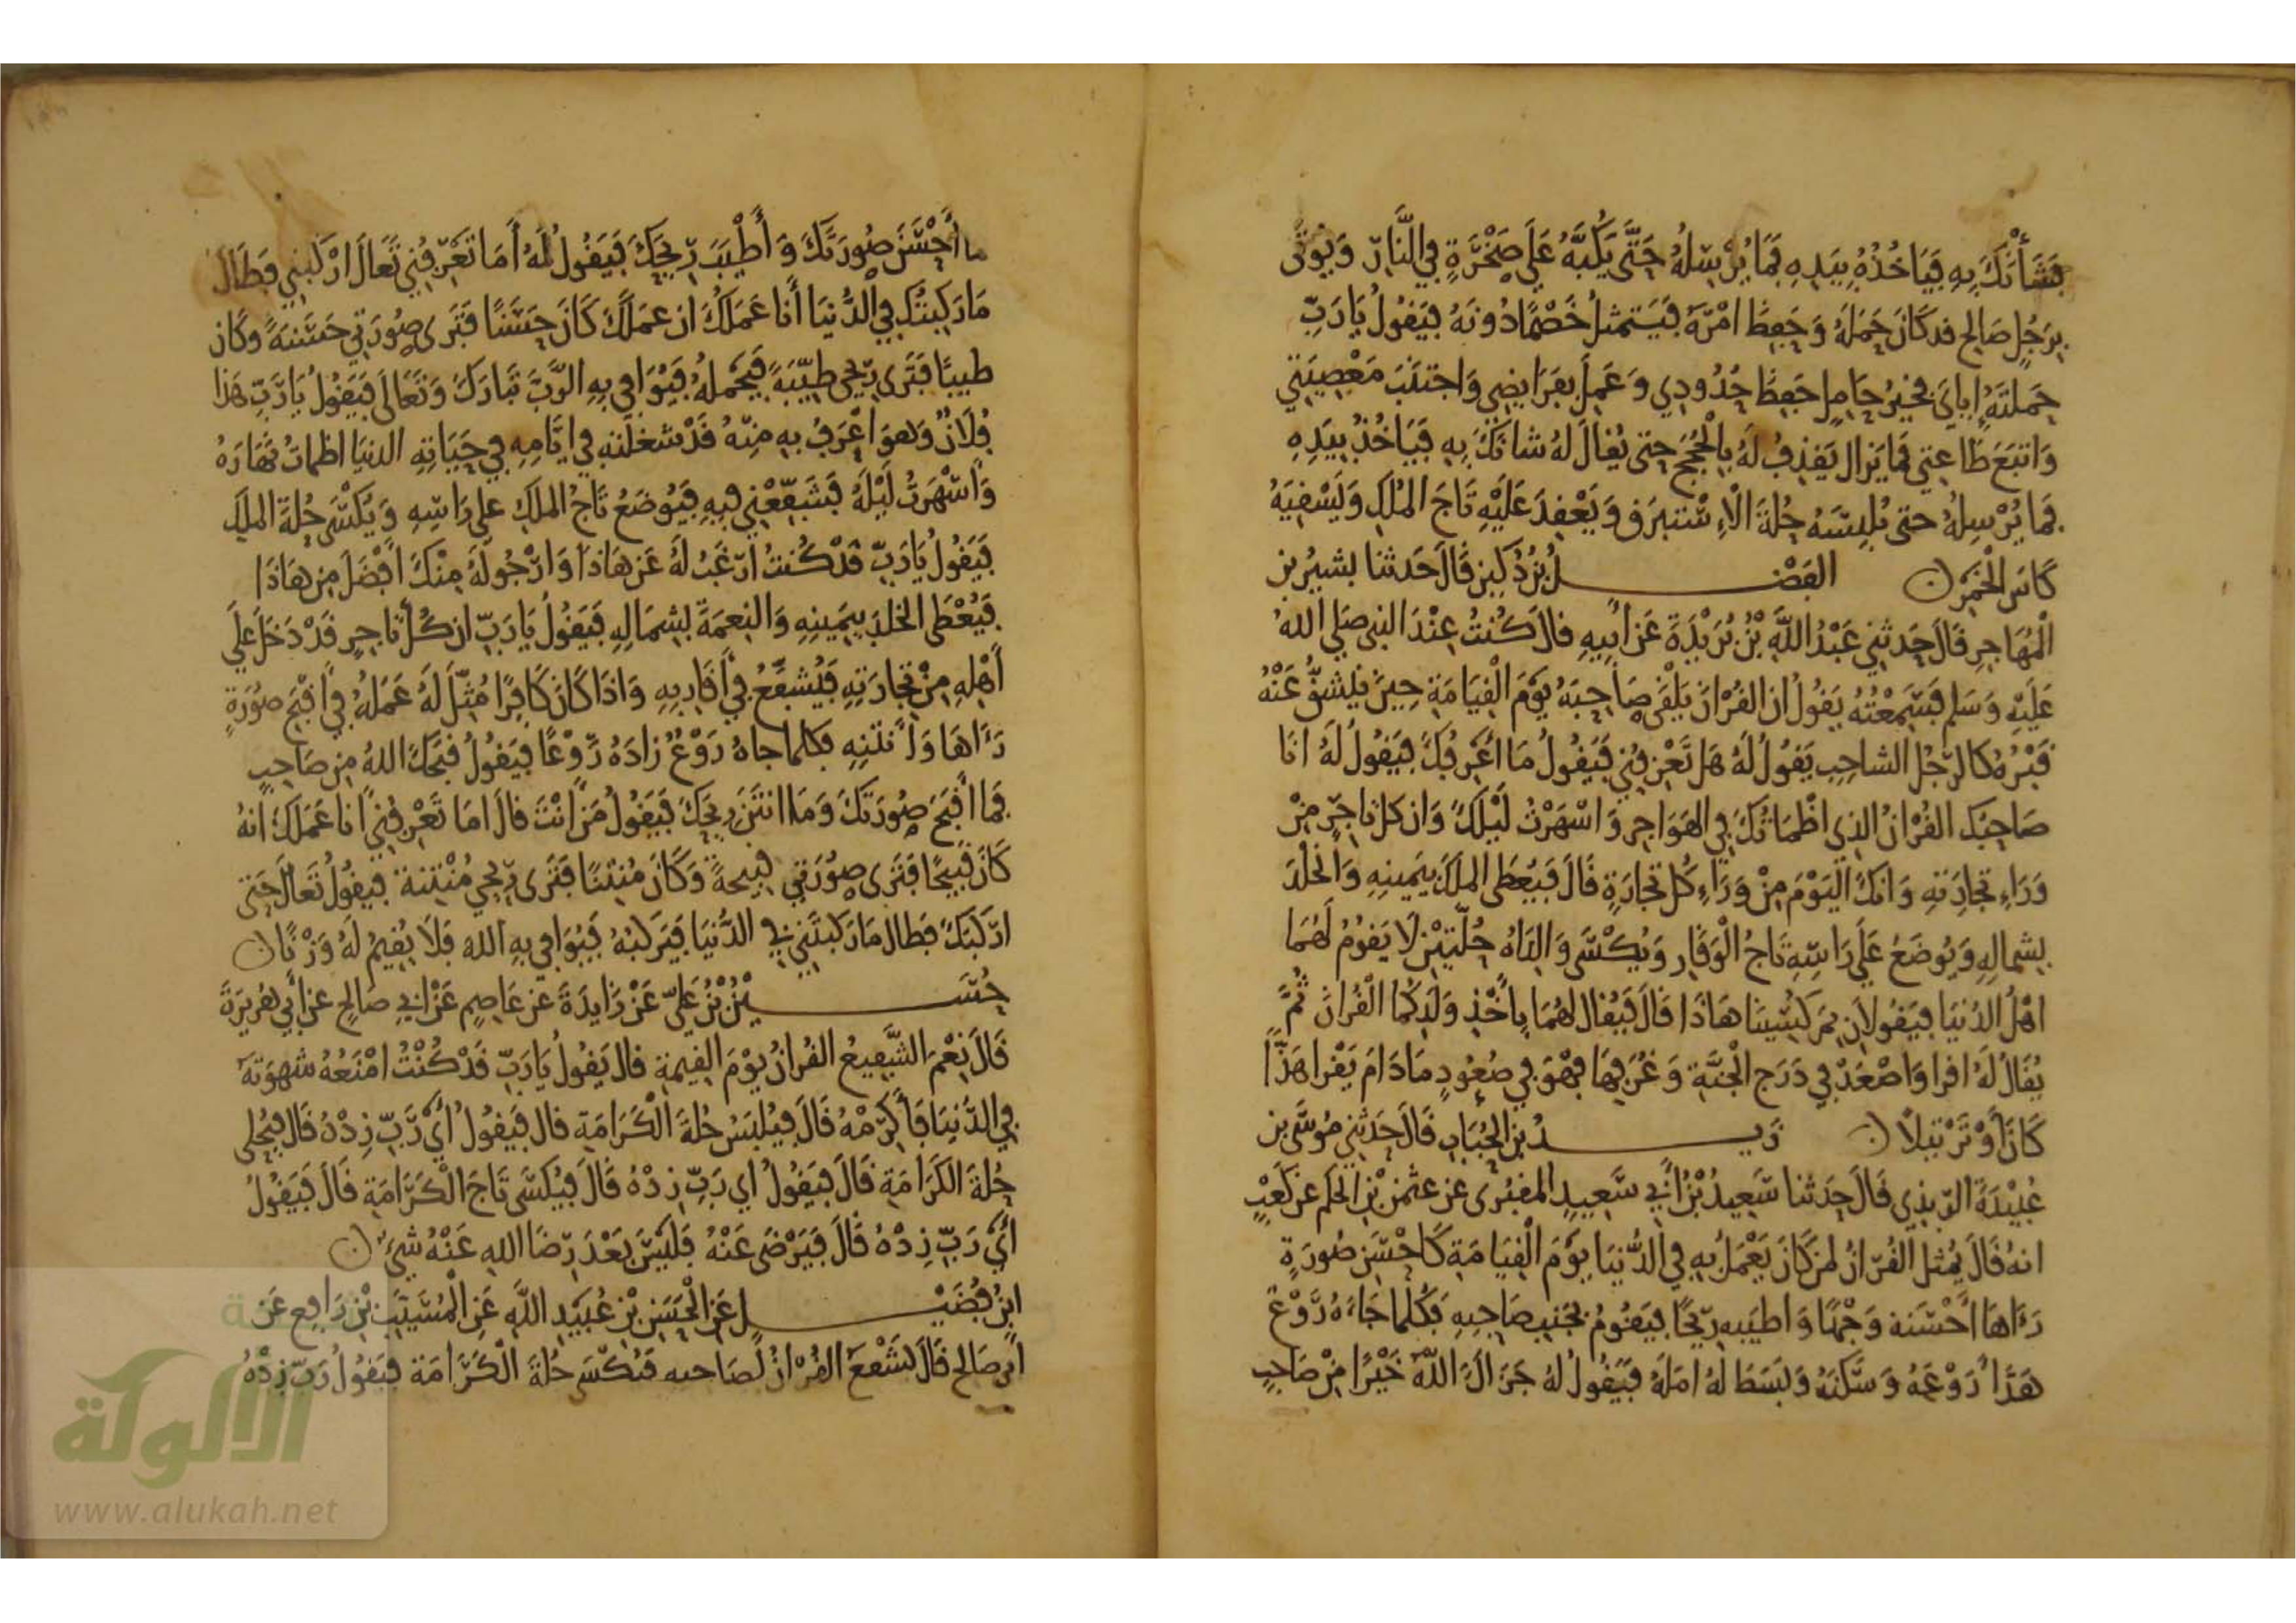 فَشَأْنَكَ بِهِ فَيَاخُذُهُ بِيَدِهِ فَمَا يُرْسِلُهُ حَتَّى يَكُبَّهُ عَلَى صَخْرَةٍ فِي النَّارِ وَيُوتَى
بِرَجُلٍ صَالِح قد كَانَ حَمَلَهُ وَحَفِظَ امْرَهُ فَيَتمثلُ خَصْمًا دُونَهُ فيَقُولُ يَا رَبِّ
حَملتَهُ إِيايَ فَخَيْرُ حَامِلٍ حَفِظَ حُدُودِي وَعَمِلَ بِفَرَايضِي وَاجتنَبَ مَعْصِيَتِي
وَاتبَعَ طَاعتِي فَمَا يَزال يَقذِفُ لَهُ بِالْحُجَجِ حتى يُقالَ لهُ شانَكَ بِهِ فَيَاخُذُ بِيَدِهِ
فَمَا يُرْسِلهُ حتى يُلبِسَهُ حُلةَ الْاِسْتبرَقِ وَيَعْقِدَ عَلَيْهِ تَاجَ المُلكِ وَيَسْقِيَهُ
كَاسَ الْخَمْرِ ن الفَضْلُ بْنُ دُكَيْن قَالَ حَدثنا بشيرُ بن
الْمُهَاجِرِ قَالَ حَدثنِي عَبْدُ اللَّهِ بْنُ بُرَيْدَةَ عَن أَبِيهِ قالَ كُنتُ عِنْدَ النبي صَلى اللهُ
عَلَيْهِ وَسَلم فَسَمِعْتُهُ يَقُولُ ان القُرْانَ يَلْقَى صَاحِبَهُ يَوْمَ الْقِيَامَةِ حِينَ يَنْشَقُّ عَنْهُ
قَبْرُهُ كَالرَّجُلِ الشاحِبِ يَقُولُ لَهُ هَل تَعْرِفُنِي فَيَقُولُ مَا أَعْرِفُكَ فيَقُولُ لَهُ انَا
صَاحِبُكَ القُرْانُ الذِي اظْمَاتُكَ فِي الهَوَاجِرِ وَاسْهَرْتُ لَيْلَكَ وَان كل تَاجِرٍ مِنْ
وَرَاءِ تجَارَتِهِ وَانكَ الْيَوْمَ مِنْ وَرَاءِ كُلِّ تِجَارَةٍ قَالَ فَيُعْطَى المُلكَ بِيَمينِهِ وَالْخُلْدَ
بِشِمَالِهِ وَيُوضَعُ عَلَى رَاسِهِ تَاجُ الْوَقَارِ وَيُكْسَى وَالِدَاهُ حُلَّتَيْنِ لَا يَقومُ لَهُمَا
اهْلُ الدُنيَا فيَقُولَانِ بِمَ كُسِينَا هَاذَا قَالَ فَيُقال لهُمَا بِاخْذِ وَلَدِكُما الْقُرانَ ثُمَّ
يُقَالُ لَهُ اقرا وَاصْعَدْ فِي دَرَجِ الْجَنَّةِ وَغُرَفِهَا فَهْوَ فِي صُعُودٍ مَا دَامَ يَقْرا هَذًّا
كَانَ أَوْ تَرْتِيلًا ن زَيْدُ بن الحُبَابِ قَالَ حَدَثَنِي مُوسَى بن
عُبَيْدَةَ الرَّبَذِي قَالَ حَدَثنا سَعِيدُ بْنُ أَبِي سَعِيدٍ المقبُرى عَن عثمن بْنِ الحَكَم عَن كَعْبٍ
انهُ قَالَ يُمثل القُرْانُ لِمَنْ كَانَ يَعْمَلُ بِهِ فِي الدُّنيَا يَوْمَ الْقِيَامَةِ كَاحْسَنِ صُورَةٍ
رَءَاهَا أَحْسَنه وَجْهًا وَاطيَبه رِيحًا فيَقُومُ بِجَنبِ صَاحِبِهِ فَكُلما جَاءَهُ رَوْعٌ
هَدَّأ رَوْعَهُ وَسَكنَهُ وَبَسَطَ لَهُ امَلَهُ فَيَقُولُ لهُ جَزَاكَ اللَّهُ خَيْرًا مِنْ صَاحِبٍ
ما أَحْسَنَ صُورَتَكَ وَأَطْيَبَ رِيحَكَ فَيَقُولُ لَهُ أَمَا تَعْرِفُنِي تَعَالَ ارْكَبْنِي فَطَالَ
مَا رَكِبتُكَ فِي الدُّنيَا أَنَا عَمَلُكَ ان عَمَلَكَ كَانَ حَسَنًا فَتَرى صُورَتِي حَسَنةً وكَان
طيبًا فَتَرى رِيحِي طيِّبَةً فَيَحملهُ فيُوَافِي بِهِ الرَّبَّ تَبَارَكَ وَتَعَالَى فَيَقُولُ يَا رَبِّ هَذا
فُلَانٌ وَهوَ اعْرَفُ بِهِ مِنهُ قَدْ شغلتهِ فِي ايَّامِهِ فِي حَيَاتِهِ الدنيَا اظماتُ نَهَارَهُ
وَاسْهَرتُ لَيْلَهُ فَشَفِّعْنِي فِيهِ فَيُوضَعُ تَاجُ الملكِ على رَاسِهِ وَيُكْسَى حُلةَ الملكِ
فَيَقُولُ يَا رَبِّ قَدْ كُنتُ ارغَبُ لَهُ عَن هَاذَا وَارْجُو لَهُ مِنْكَ افْضَلَ مِن هَاذَا
فَيُعْطَى الخلدَ بِيَمِينِهِ وَالنِعمَةَ بِشِمَالِهِ فَيَقُولُ يَا رَبِّ ان كُلَّ تاجِرٍ قَدْ دَخَلَ عَلَى
أَهْلِهِ مِنْ تِجَارَتِهِ فَيُشَفَّعُ فِي أَقَارِبِهِ وَاذَا كَانَ كَافِرًا مُثِّلَ لَهُ عَمَلُهُ فِي اقْبَحِ صُورَةٍ
رَءَاهَا وَأَنْتَنِهِ فَكلما جاهُ رَوْعٌ زادَهُ رَوْعًا فَيَقُولُ قبَحَكَ اللهُ مِن صَاحِبٍ
فَما اقْبَحَ صُورَتَكَ وَمَا انتَنَ رِيحَكَ فَيَقُولُ مَنْ انْتَ قالَ امَا تَعْرِفُنِي انا عَمَلكَ انهُ
كَانَ قَبِيحًا فَتَرَى صُورَتِي قبيحةً وَكَانَ مُنتِنًا فَتَرَى رِيحِي مُنْتِنة فيقُولُ تَعَالَ حَتى
ارْكَبَكَ فَطالَ مَا رَكبتَنِي فِي الدُّنيَا فيَركبُهُ فيُوَافِي بِهِ الله فَلَا يُقِيمُ لَهُ وَزْنًا ن
حُسَيْنُ بْنُ عَلِيّ عَنْ زَايِدَةَ عن عَاصِمٍ عَنْ ابي صَالح عن أَبِي هُرَيرَةَ
قَالَ نِعْمَ الشَّفِيعُ القُرانُ يَوْمَ القيمةِ قالَ يَقُولُ يَا رَبِّ قَدْ كُنْتُ امْنَعُهُ شهوَتَهُ
فِي الدُّنيَا فَأَكْرِمْهُ قَالَ فيُلبَسُ حُلةَ الْكَرَامَةِ قالَ فَيَقُولُ أَيْ رَبِّ زِدْهُ قَالَ فيُحلى
حُلةَ الكَرَامَةِ قَالَ فَيَقُولُ اي رَبِّ زِدْهُ قَالَ فيُكسَى تَاجَ الْكَرَامَةِ قَالَ فَيَقُولُ
أَيْ رَبِّ زِدْهُ قَالَ فَيَرْضَى عَنْهُ فَلَيْسَ بَعْدَ رِضَا اللهِ عَنْهُ شيءٌ ن
ابنُ فُضَيْل عَن الْحَسَنِ بْنِ عُبَيْدِ اللَّهِ عَنِ الْمُسَيَّبِ بْنِ رَافِع عَن
ابي صَالح قَالَ يَشْفَعُ القُرْانُ لصَاحبه فَيُكْسَى حُلةَ الْكَرَامَة فيَقُولُ رَبِّ زِدْهُ
الألوكة
www.alukah.net